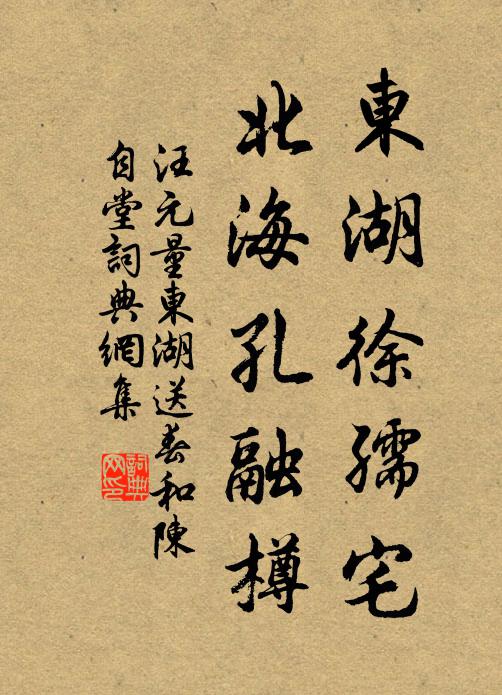 東湖徐孺宅
北海孔融樽
汪元量東湖送春和陳
自堂詞典網集
詞典
网印